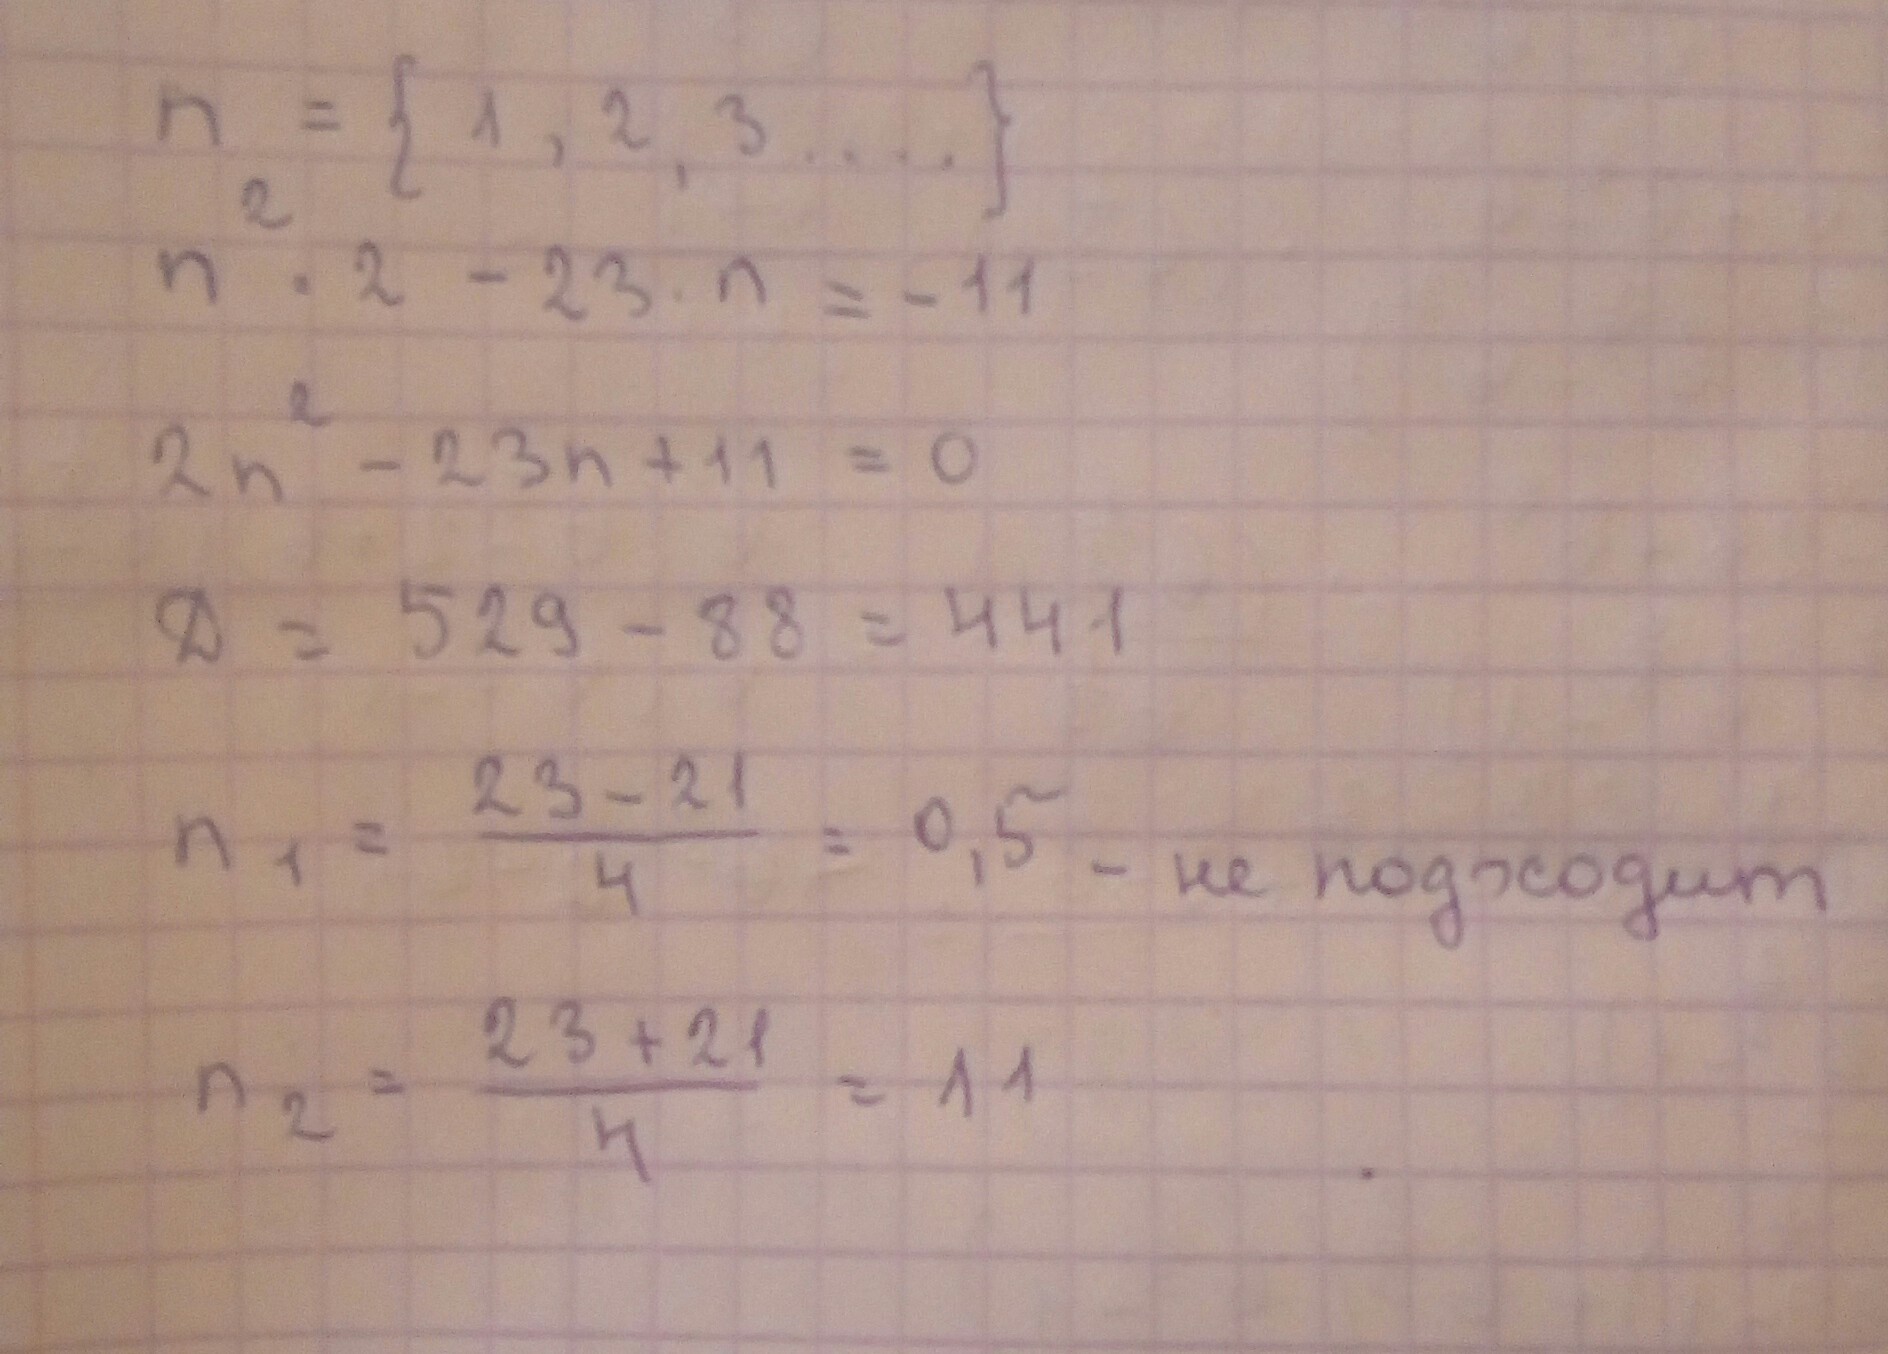 n = { 1 , 2 , 3 . . . . }
n² · 2 - 23 · n = - 11
2n² - 23n + 11 = 0
D = 529 - 88 = 441
n₁ = (23 - 21)/4 = 0,5 - не подходит
n₂ = (23 + 21)/4 = 11